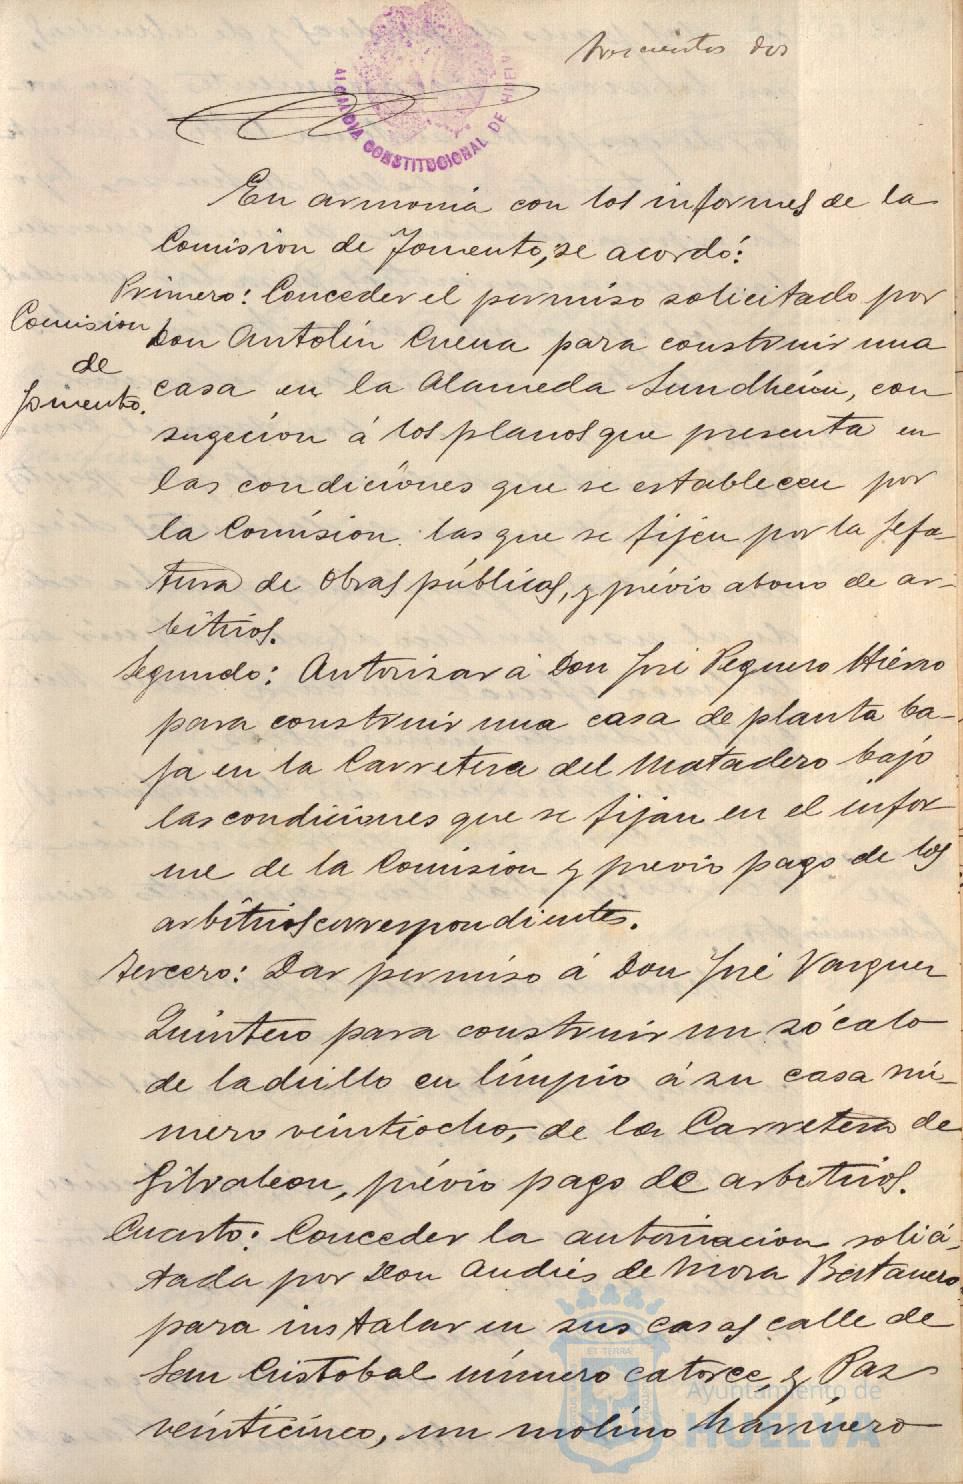 trescientos dos
ALCALDIA CONSTITUCIONAL DE HUELVA
En armonia con los informes de la
Comision de Fomento, se acordó:
Primero: Conceder el permiso solicitado por
Comision
de
Fomento.
Don Antolin Cuena para construir una
casa en la Alameda Sundheim, con
sugecion á los planos que presenta en
las condiciones que se establecen por
la Comision las que se fijen por la Jefa-
tura de Obras públicas, y prévio abono de ar-
bitrios.
Segundo: Autorizar á Don José Peguero Hierro
para construir una casa de planta ba-
ja en la Carretera del Matadero bajo
las condiciones que se fijan en el infor
me de la Comision y previo pago de los
arbitrios correspondientes.
Tercero: Dar permiso á Don José Varguez
Quintero para construir un zócalo
de ladrillo en limpio á su casa nú-
mero veintiocho, de la Carretera de
Gibraleon, prévio pago de arbitrios.
Cuarto: Conceder la autorizacion solici-
tada por Don Andrés de Mora Bertanero
para instalar en sus casas calle de
San Cristobal número catorce, y Paz
veinticinco, un molino harinero
ET TERRÆ
Ayuntamiento de
HUELVA